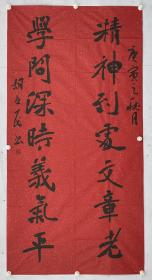 庚寅之秋月
精神到處文章老
學問深時義氣平